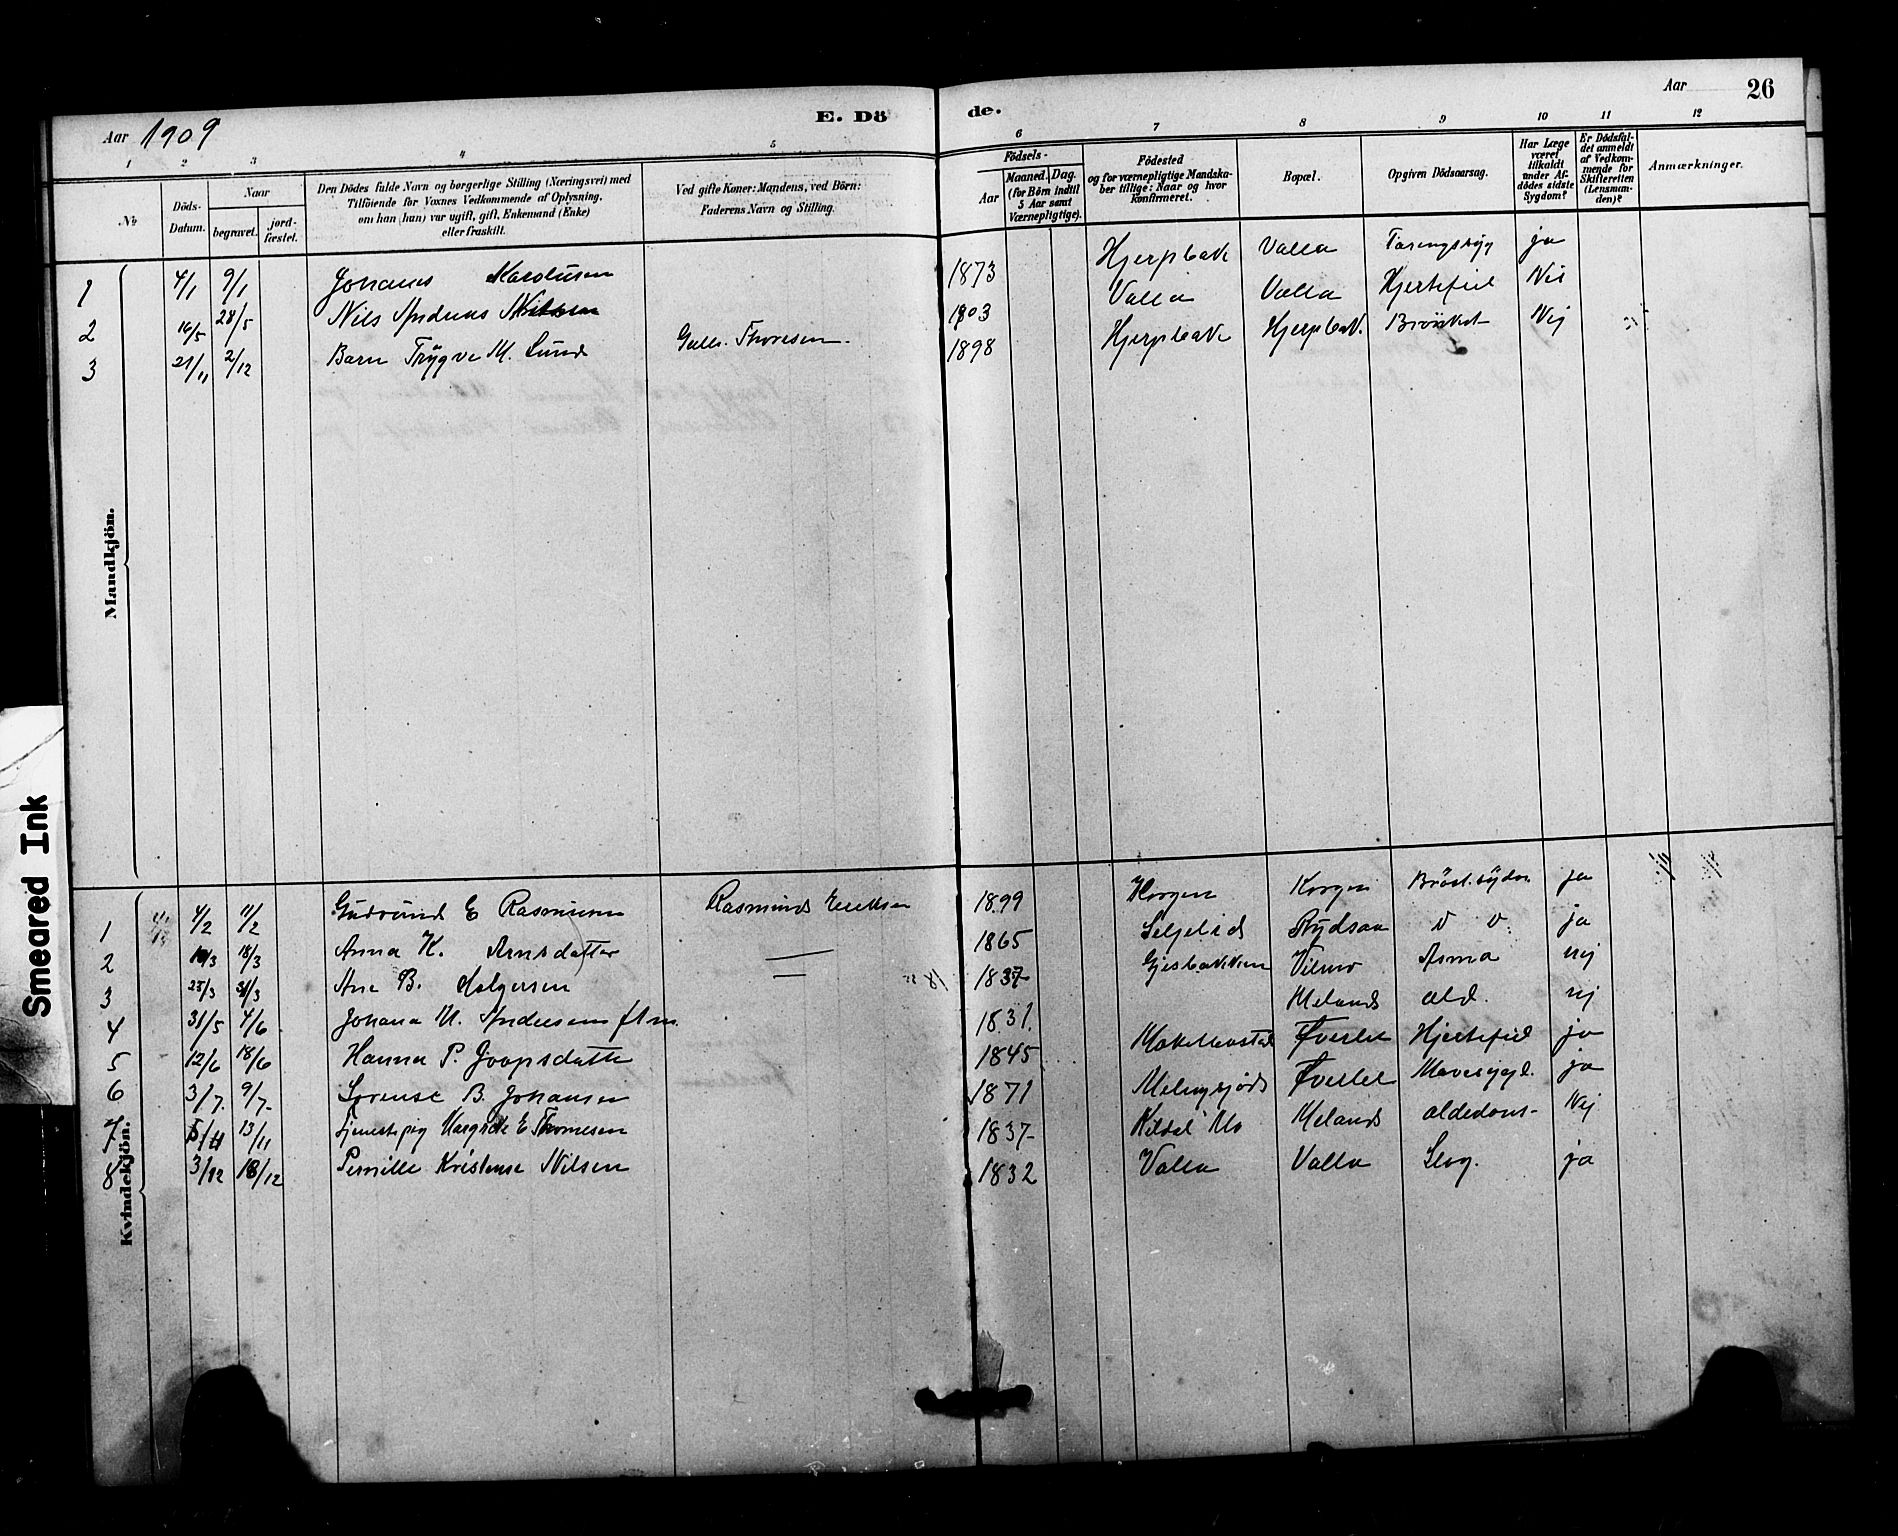 Aar 1909 E. Döde. Aar 26
1 2 3 4 5 6 7 8 9 10 11 12
No
Döds-Datum.
Naar
begravet.
jord-fæstet.
Den Dödes fulde Navn og borgerlige Stilling (Næringsvei) med
Tilföiende for Voxnes Vedkommende af Oplysning,
om han (hun) var ugift, gift, Enkemand (Enke)
eller fraskilt.
Ved gifte Koner: Mandens, ved Börn:
Faderens Navn og Stilling.
Födsels-
Aar
Maaned. Dag.
(for Börn indtil
5 Aar samt
Værnepligtige).
Födested
og for værnepligtige Mandska-
ber tillige: Naar og hvor
konfirmeret.
Bopæl.
Opgiven Dödsaarsag.
Har Læge
været
tilkaldt
under Af-
dödes sidste
Sygdom?
Er Dödsfal-
det anmeldt
af Vedkom-
mende for
Skifteretten
(Lensman-
den)?
Anmærkninger.
Mandkjön.
1 4/1 9/1 Johanes 1873 Hjerpbak Valla ja
2 16/5 28/5 Nils Andreas Valla Valla Hjertefeil Nei
3 21/11 2/12 Barn Trygve M. Lund Thoresen. 1898 Hjerpbak Hjerpbak. Nej
Kvindekjön.
1 4/2 11/2 Gudrund E Rasmusen Rasmund Eriksen 1899 Korgen Korgen ja
2 18/3 Anna K. Arntsdatter 1865 Seljelid v v. ja
3 31/3 Ane B. Holgersen 1837 Asma nej
4 31/5 4/6 Johana M. Andersen 1831. Meland ald. nej
5 12/6 18/6 Hanna P. Joopsdatter 1845 Øverlei Hjertefeil ja
6 3/7. 9/7. Sorense B. Johansen 1871 Øverlei ja
7 13/11 Tjenestepig Margrete E Thomesen 1837 Kildal Mo Meland Nej
8 3/12 18/12 Pernille Kristense Nilsen 1832 Valla Valla Slag. ja
Smeared Ink